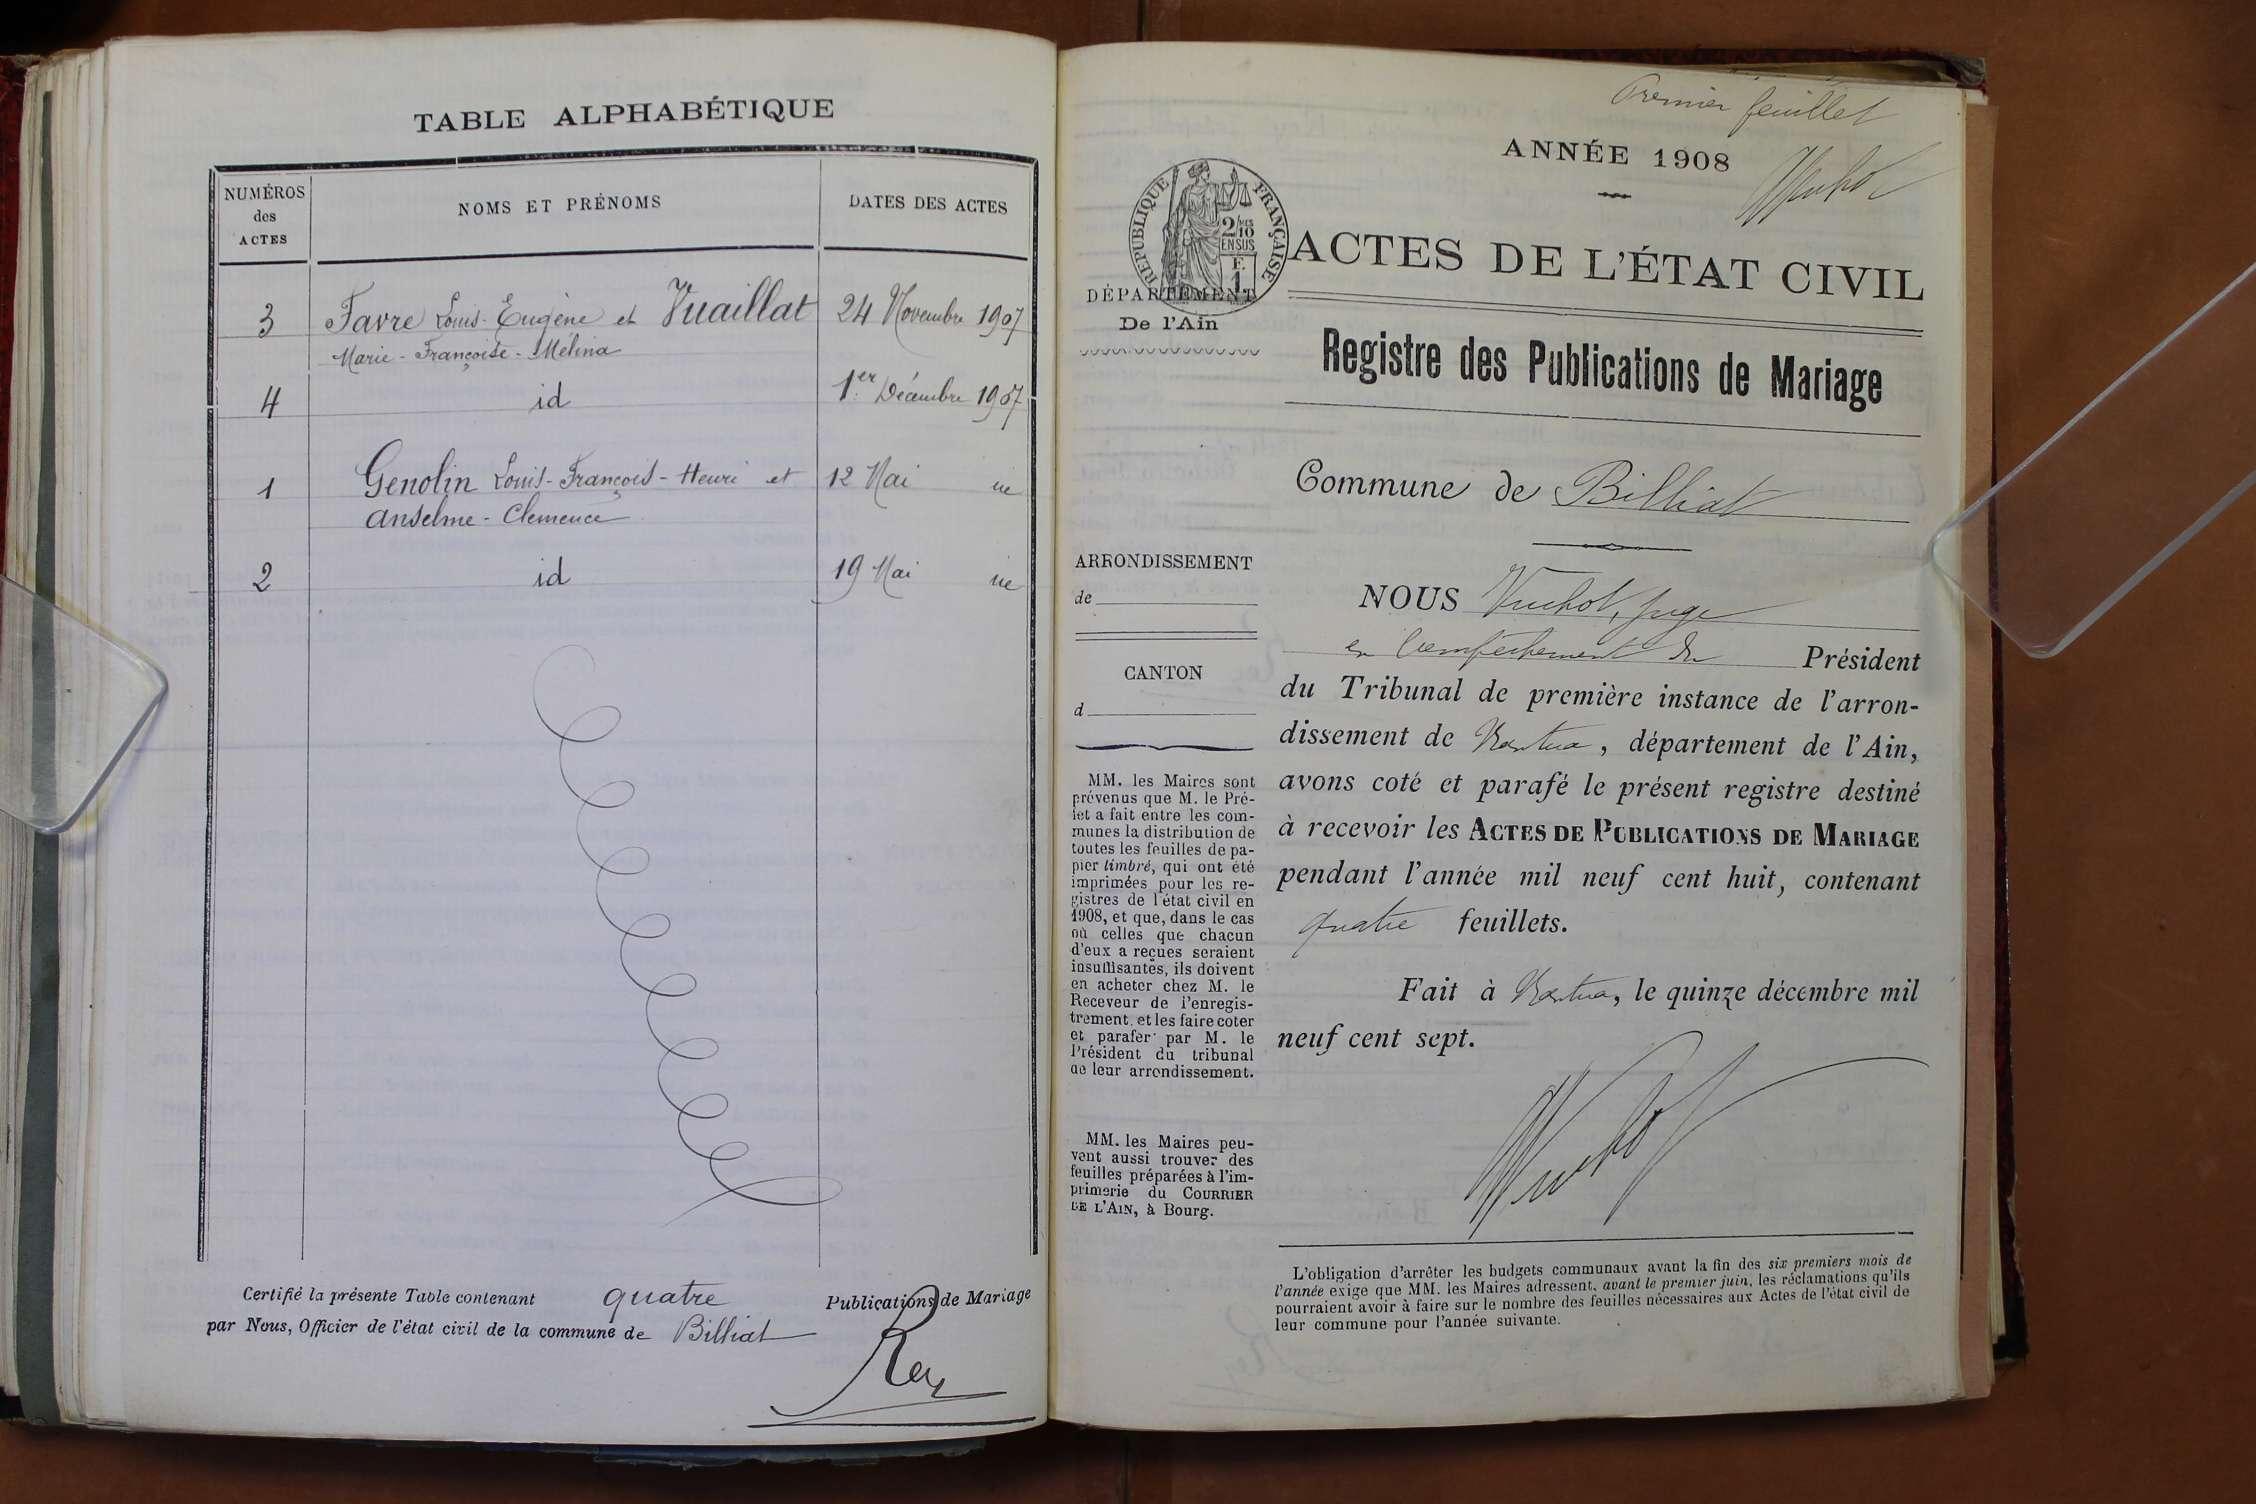 TABLE ALPHABÉTIQUE
NUMÉROS des ACTES
NOMS ET PRÉNOMS
DATES DES ACTES
3 Favre Louis-Eugène et Vuaillat 24 Novembre 1907
Marie-Françoise-Mélina
4 id 1er Décembre 1907
1 Genolin Louis-François-Henri et 12 Mai
Anselme-Clemence
2 id 19 Mai
Certifié la présente Table contenant quatre Publications de Mariage
par Nous, Officier de l'état civil de la commune de Billiat
Rey
Premier feuillet
ANNÉE 1908
RÉPUBLIQUE FRANÇAISE
2/10
EN SUS
F.
1
ACTES DE L'ÉTAT CIVIL
DÉPARTEMENT
De l'Ain
Registre des Publications de Mariage
Commune de Billiat
ARRONDISSEMENT
de
CANTON
d
MM. les Maires sont
prévenus que M. le Pré-
fet a fait entre les com-
munes la distribution de
toutes les feuilles de pa-
pier timbré, qui ont été
imprimées pour les re-
gistres de l'état civil en
1908, et que, dans le cas
où celles que chacun
d'eux a reçues seraient
insuffisantes, ils doivent
en acheter chez M. le
Receveur de l'enregis-
trement, et les faire coter
et parafer par M. le
Président du tribunal
de leur arrondissement.
MM. les Maires peu-
vent aussi trouver des
feuilles préparées à l'im-
primerie du COURRIER
DE L'AIN, à Bourg.
NOUS Vuchot, juge
en l'empêchement du Président
du Tribunal de première instance de l'arron-
dissement de Nantua, département de l'Ain,
avons coté et parafé le présent registre destiné
à recevoir les ACTES DE PUBLICATIONS DE MARIAGE
pendant l'année mil neuf cent huit, contenant
quatre feuillets.
Fait à Nantua, le quinze décembre mil
neuf cent sept.
L'obligation d'arrêter les budgets communaux avant la fin des six premiers mois de
l'année exige que MM. les Maires adressent, avant le premier juin, les réclamations qu'ils
pourraient avoir à faire sur le nombre des feuilles nécessaires aux Actes de l'état civil de
leur commune pour l'année suivante.